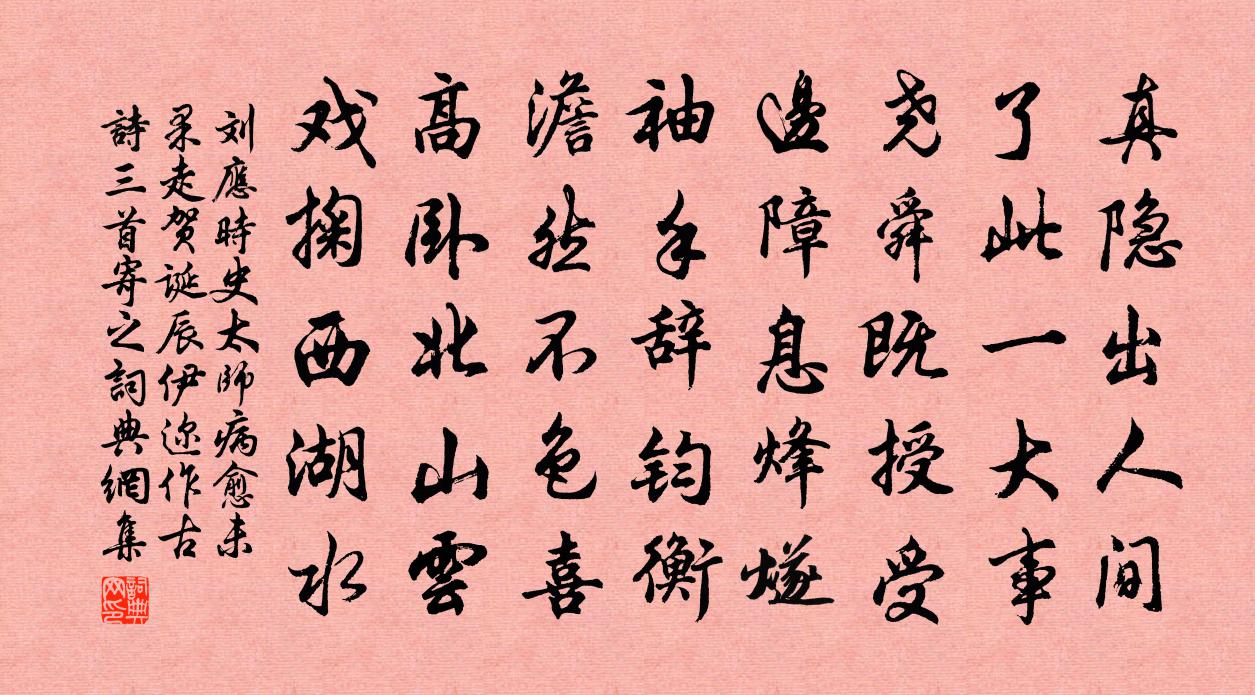 真隐出人间
了此一大事
尧舜既授受
邊障息烽燧
袖手辞钧衡
澹然不色喜
高卧北山雲
戏掬西湖水
刘應時史太師病愈未
果走贺诞辰伊迩作古
詩三首寄之詞典網集
詞典网印